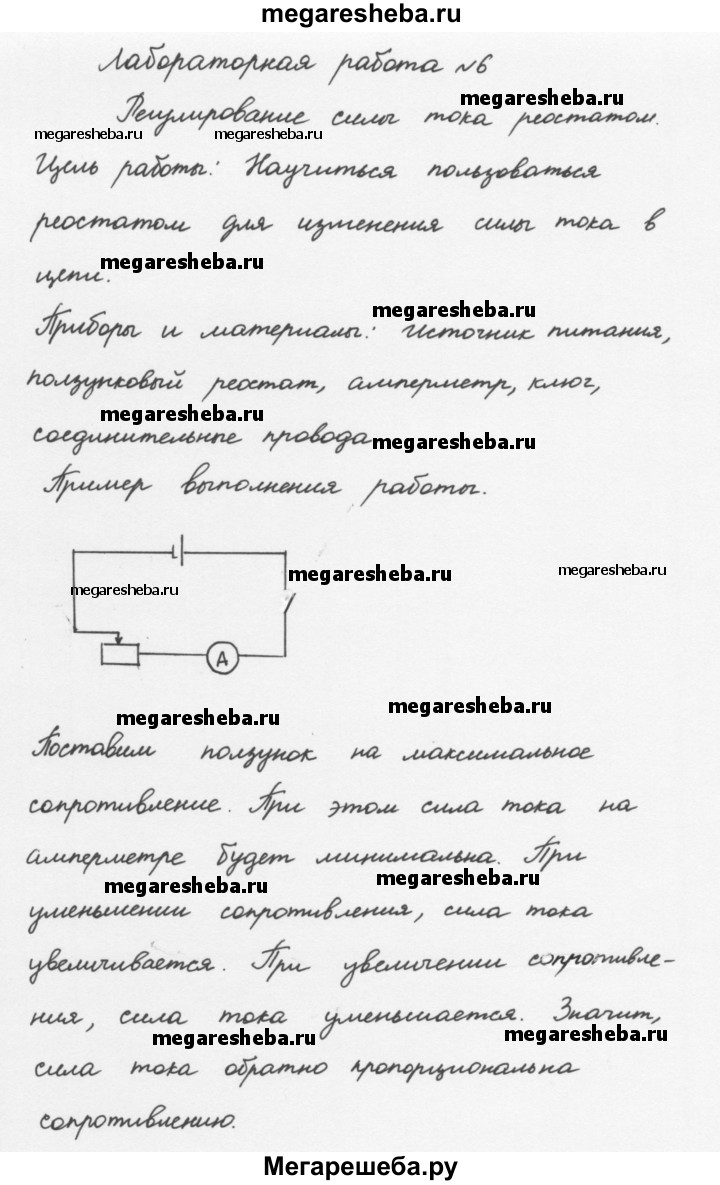 megaresheba.ru
Лабораторная работа №6
megaresheba.ru
Регулирование силы тока реостатом.
megaresheba.ru megaresheba.ru
Цель работы: Научиться пользоваться
реостатом для изменения силы тока в
цепи. megaresheba.ru
megaresheba.ru
Приборы и материалы: Источник питания,
ползунковый реостат, амперметр, ключ,
megaresheba.ru
соединительные провода megaresheba.ru
Пример выполнения работы.
megaresheba.ru megaresheba.ru
megaresheba.ru
А
megaresheba.ru megaresheba.ru
Поставим ползунок на максимальное
сопротивление. При этом сила тока на
амперметре будет минимальна. При
megaresheba.ru megaresheba.ru
уменьшении сопротивления, сила тока
увеличивается. При увеличении сопротивле-
ния, сила тока уменьшается. Значит,
megaresheba.ru megaresheba.ru
сила тока обратно пропорциональна
сопротивлению.
Мегарешеба.ру